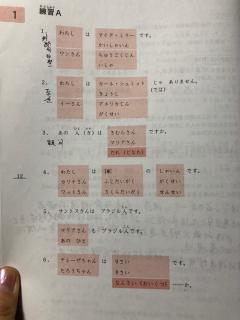 1
練習A
1.
わたし は マイク・ミラー です。
かいしゃいん
ワンさん ちゅうごくじん
いしゃ
2.
わたし は カール・シュミット じゃ ありません。
きょうし (では)
イーさん アメリカじん
がくせい
3. あの ひと(かた)は きむらさん ですか。
マリアさん
だれ(どなた)
4.
わたし は IMC の しゃいん です。
カリナさん ふじだいがく がくせい
ワットさん さくらだいがく せんせい
12
5. サントスさんは ブラジルじんです。
マリアさん も ブラジルじんです。
あの ひと
6.
テレーザちゃん は 9さい です。
たろうちゃん 8さい
なんさい(おいくつ) か。